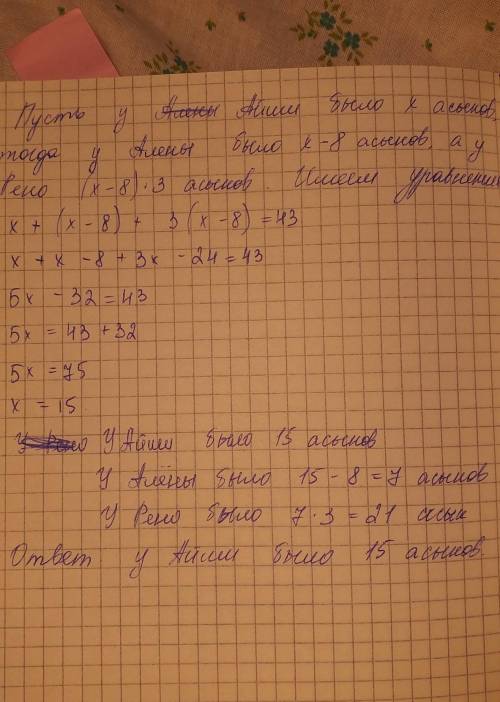 Пусть у Алены Айши было x асыков,
тогда у Алены было x-8 асыков, а у
Рено (x-8)·3 асыков. Имеем уравнение
x + (x-8) + 3(x-8) =43
x + x -8 + 3x -24 =43
5x -32 =43
5x = 43 +32
5x =75
x = 15
У Рено У Айши было 15 асыков
У Алёны было 15 - 8 = 7 асыков
У Рено было 7·3 =21 асык
Ответ у Айши было 15 асыков